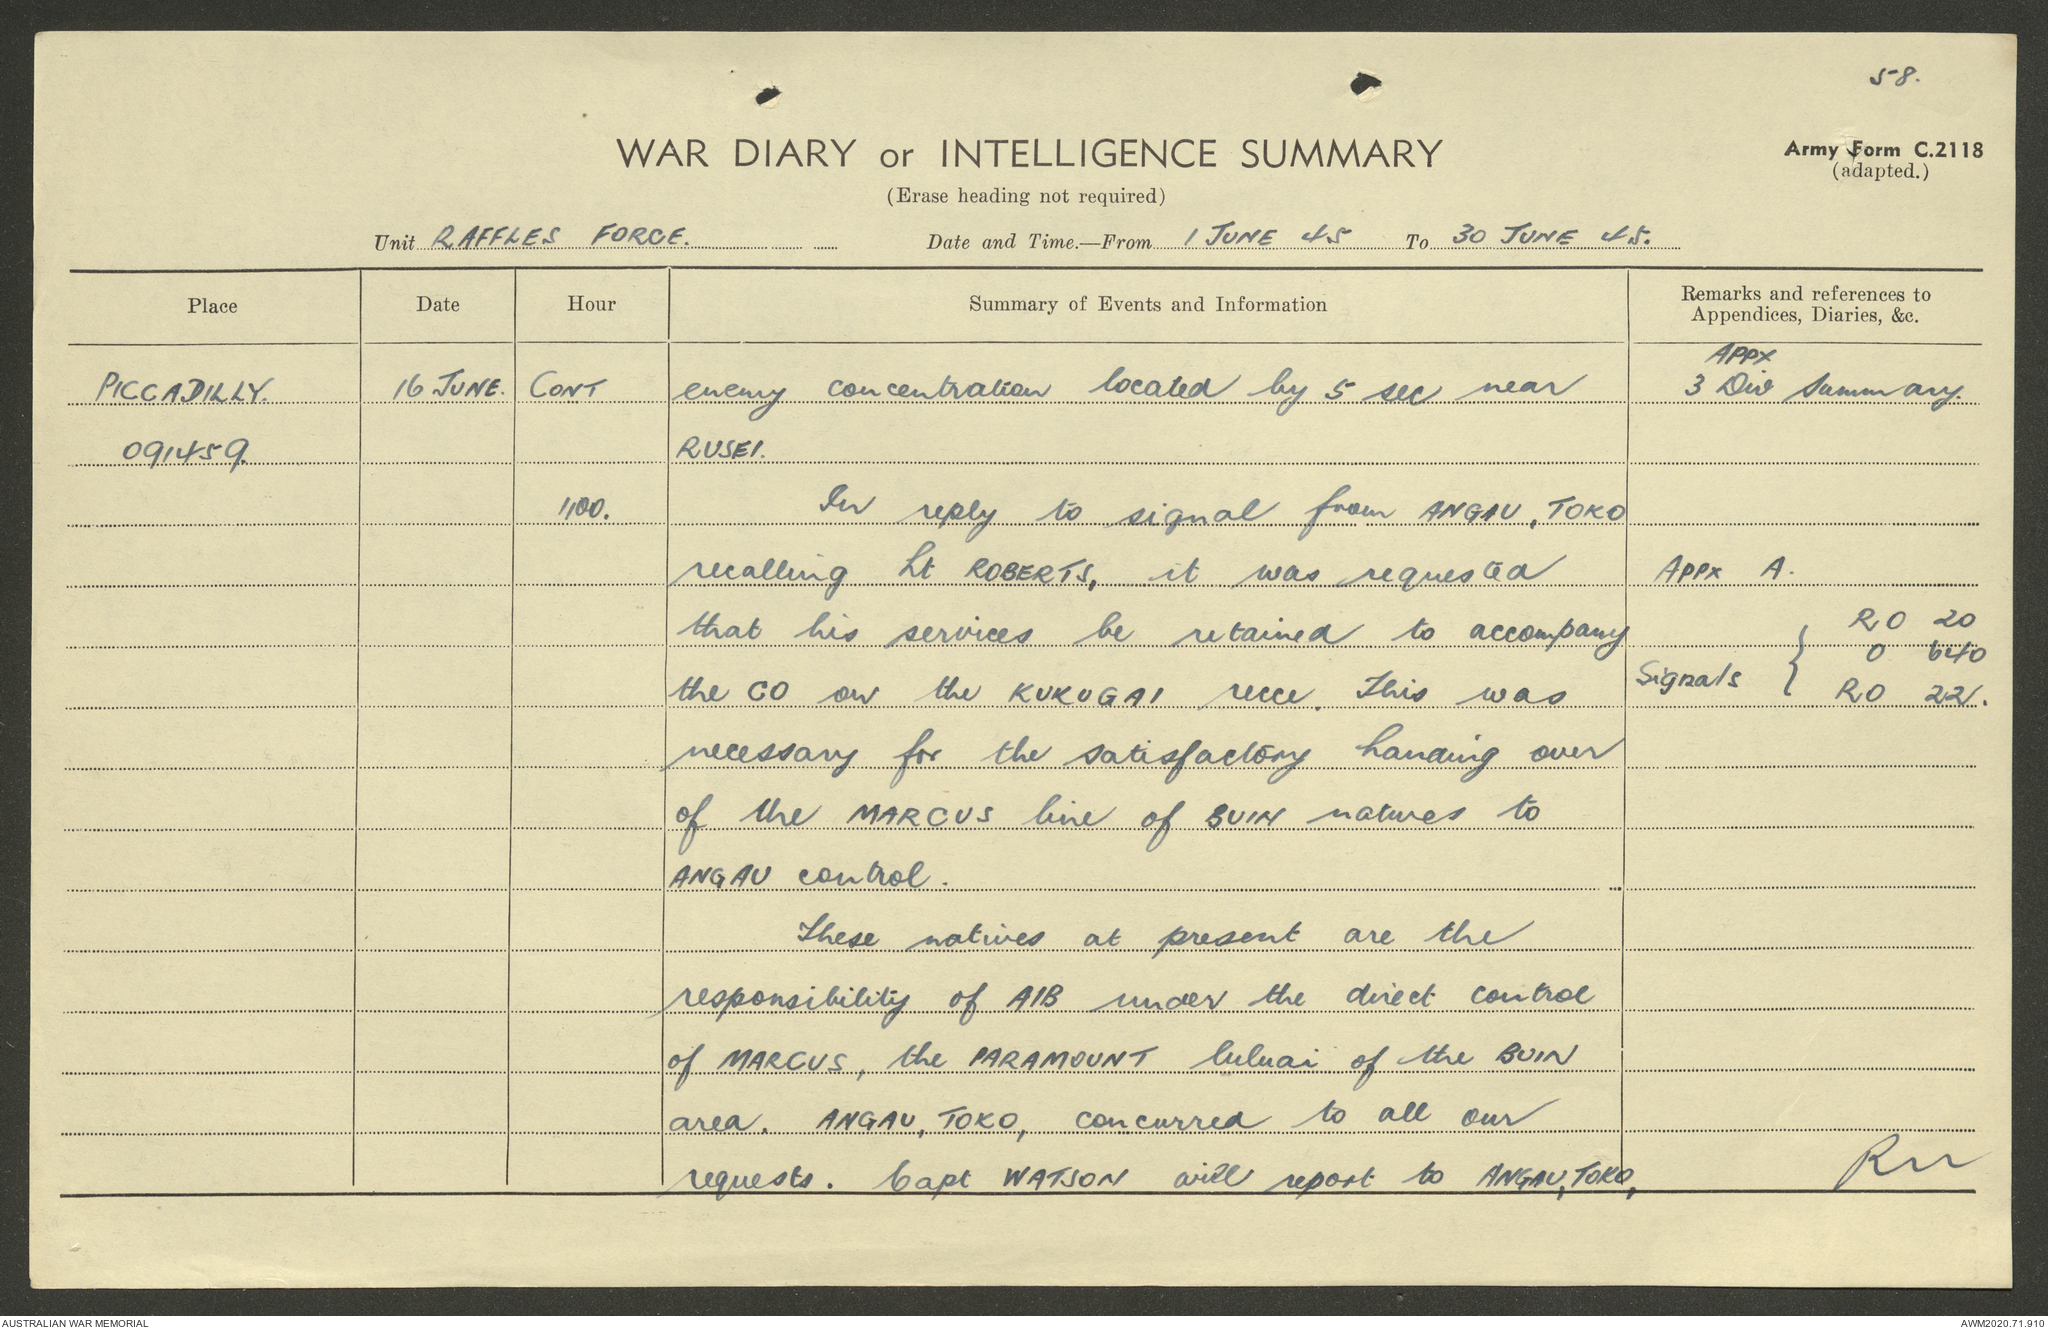 58.
WAR DIARY or INTELLIGENCE SUMMARY
Army Form C.2118
(adapted.)
(Erase heading not required)
Unit RAFFLES FORCE. Date and Time.—From 1 JUNE 45 To 30 JUNE 45.
Place Date Hour Summary of Events and Information Remarks and references to Appendices, Diaries, &c.
PICCADILLY. 16 JUNE. CONT enemy concentration located by 5 sec near APPX 3 Div Summary.
091459. RUSEI.
1100. In reply to signal from ANGAU, TOKO
recalling Lt ROBERTS, it was requested APPX A.
that his services be retained to accompany RO 20
the CO on the KUKUGAI recce. This was Signals { O 640
RO 22.
necessary for the satisfactory handing over
of the MARCUS line of BUIN natives to
ANGAU control.
These natives at present are the
responsibility of AIB under the direct control
of MARCUS, the PARAMOUNT luluai of the BUIN
area. ANGAU, TOKO, concurred to all our
requests. Capt WATSON will report to ANGAU, TOKO,
AUSTRALIAN WAR MEMORIAL AWM2020.71.910